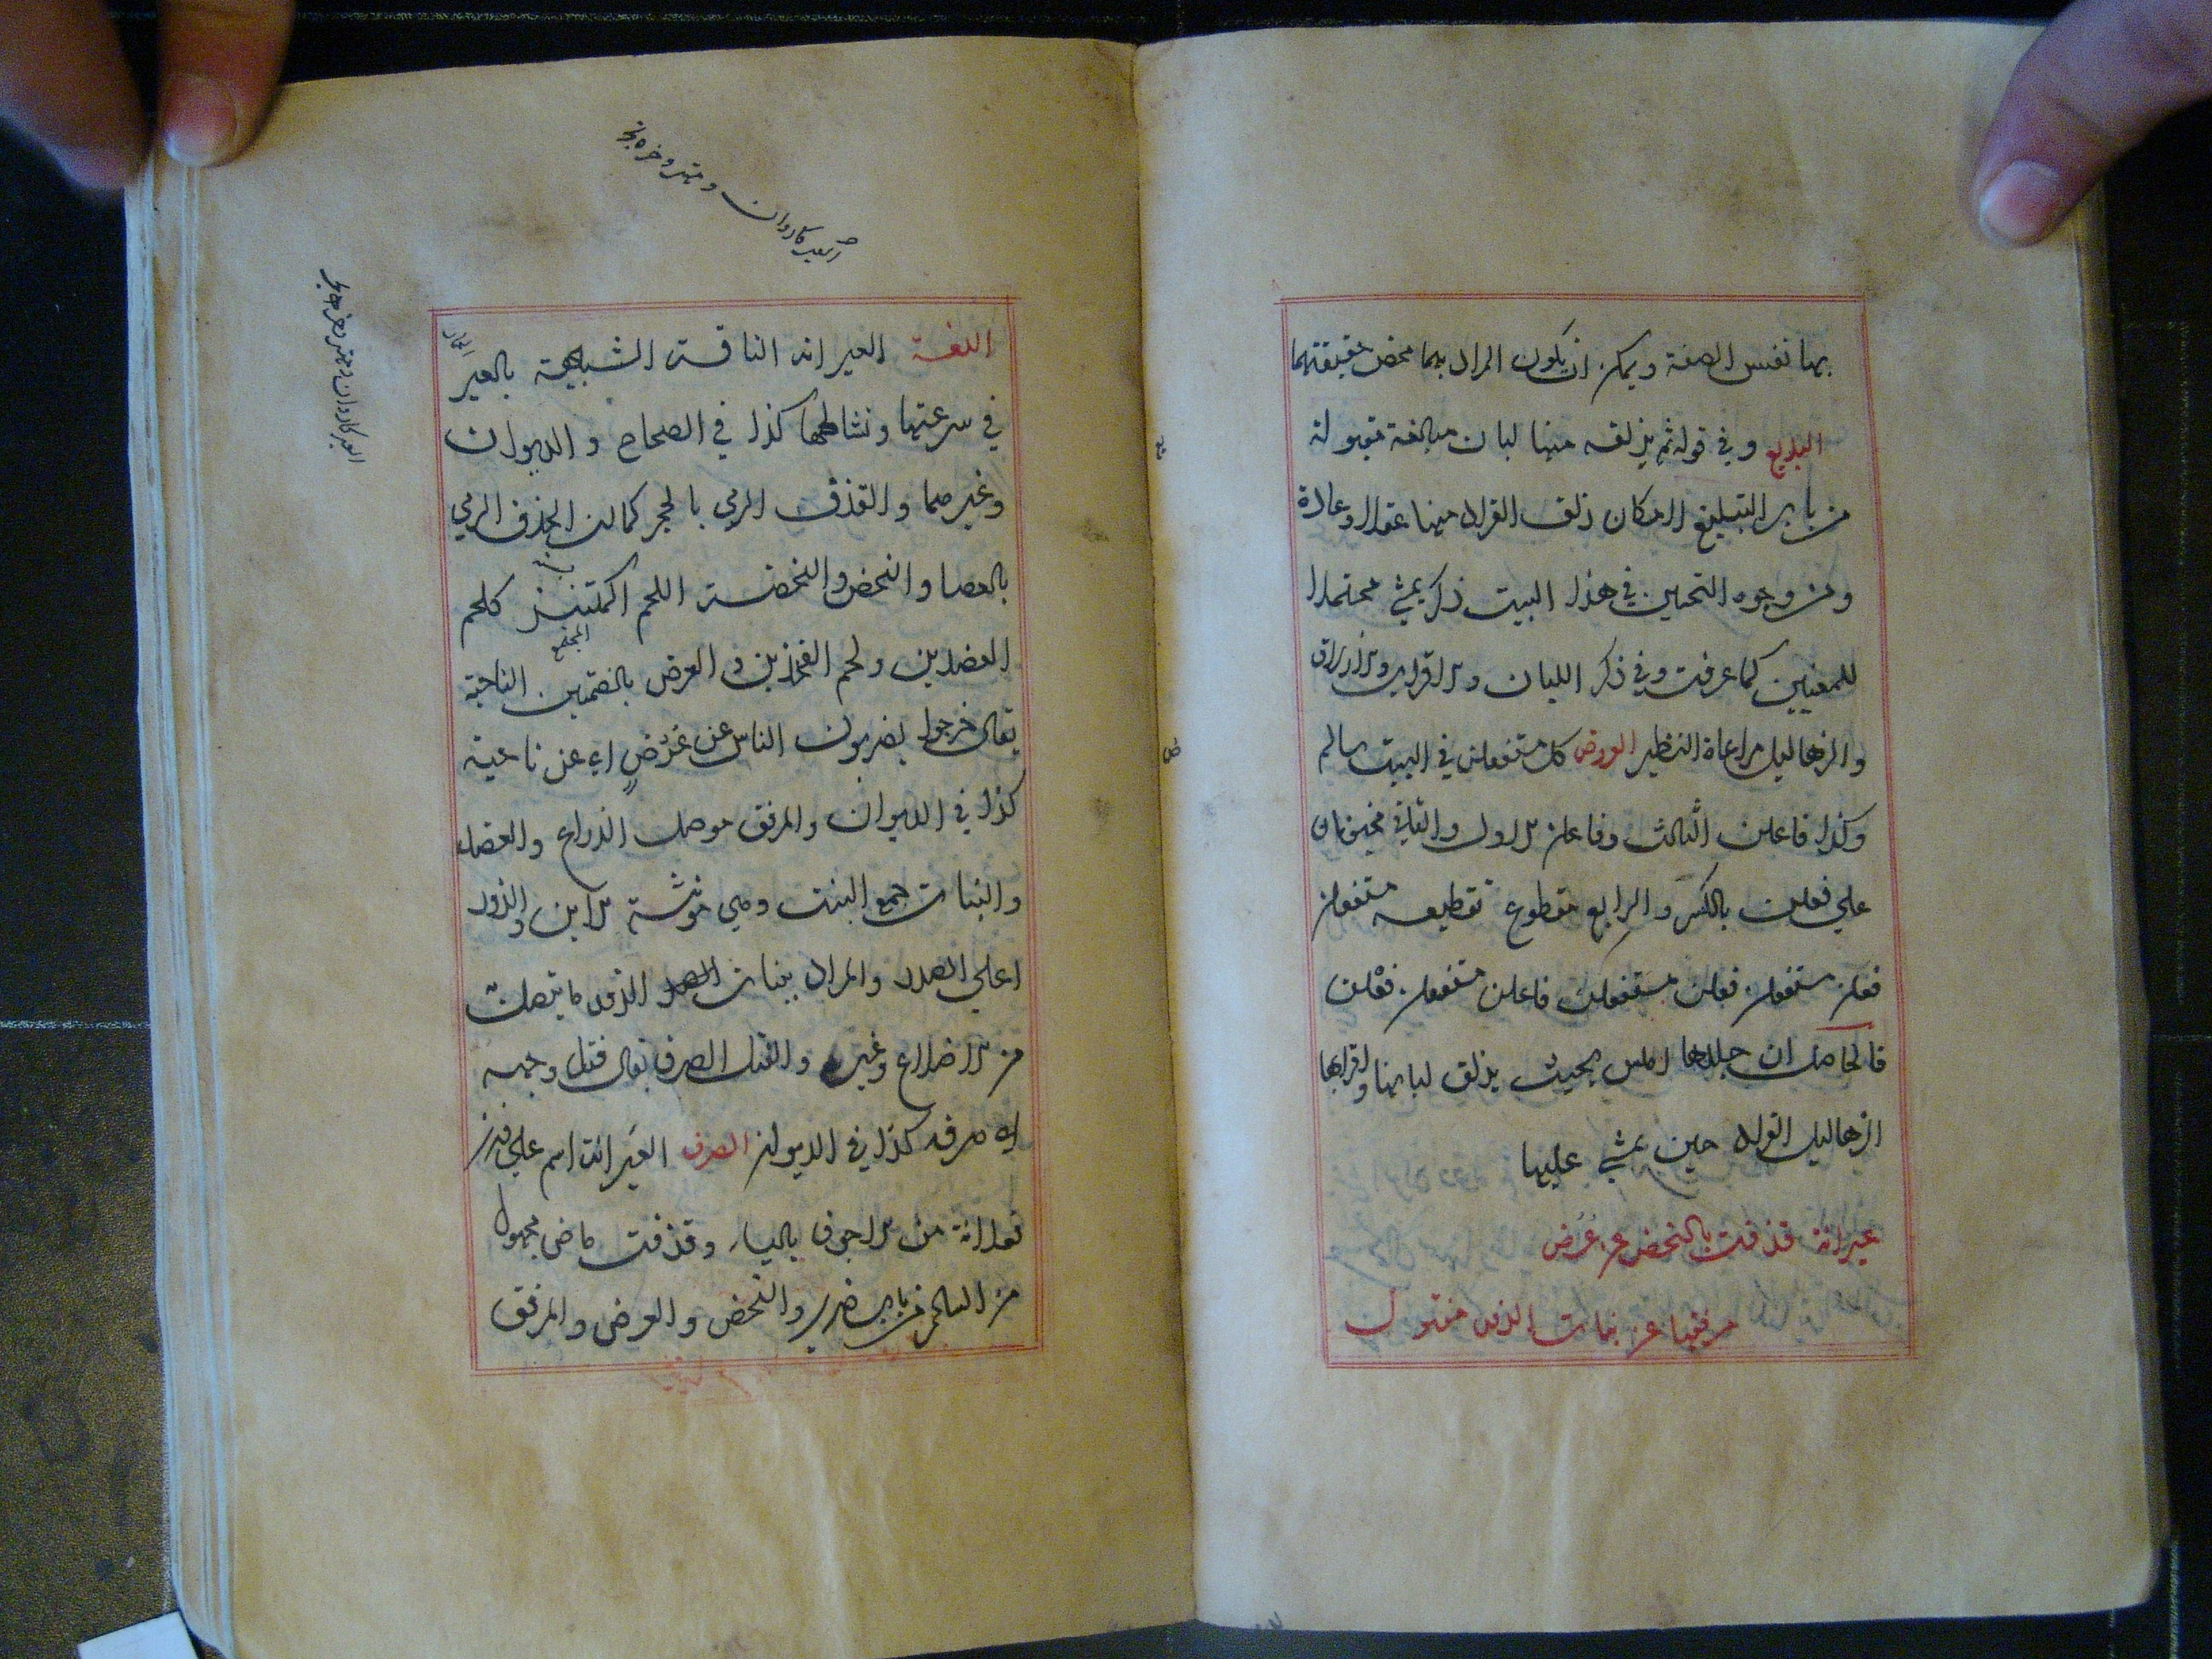 بها نفس الصفة ويمكن ان يكون المراد بهما محض حقيقتهما
البديع وفي قوله ثم يزلقه منها لبان مبالغة مقبولة
من باب التبليغ لامكان زلق القراد منها عقلا وعادة
ومن وجوه التحسين في هذا البيت ذكر يمشي محتملا
للمعنيين كما عرفت وفي ذكر اللبان والاقراب والازلاق
والزهاليل مراعاة النظير العروض كل مستفعلن في البيت سالم
وكذا فاعلن الثالث وفاعلن الاول والثاني مخبونان
علي فعلن بالكسر والرابع مقطوع تقطيعه مستفعلن
فعلن مستفعلن فعلن مستفعلن فاعلن مستفعلن فعْلن
فالحاصل ان جلدها املس بحيث يزلق لبانها واقرابها
الزهاليل القراد حين يمشي عليها
عيرانة قذفت بالنحض عن عُرُض
مرفقها عن بنات الزور مفتول
العير كاروان ومهتر وخره
العير كاروان ومهتر وخر
اللغة العيرانه الناقة الشبيهة بالعير
الحمار
في سرعتها ونشاطها كذا في الصحاح والديوان
وغيرهما والقذف الرمي بالحجر كما ان الحذف الرمي
بالعصا والنحض والنحضة اللحم المكتنز كلحم
المجتمع
العضدين ولحم الفخذين والعرض بالضمتين الناحية
يقال خرجوا يضربون الناس عن عُرُضٍ اي عن ناحية
كذا في الديوان والمرفق موصل الذراع والعضد
والبنات جمع البنت وهي مونثة الابن والزور
اعلي الصدر والمراد ببنات الزور ما يتصل
من الاضلاع وغيره والفتل الصرف يقال فتل وجهه
اي صرفه كذا في الديوان الصرف العَيرانة اسم علي وزن
فعلانة من الاجوف باليا وقذفت ماضي مجهول
من السالم من باب ضرب والنحض والعرض والمرفق